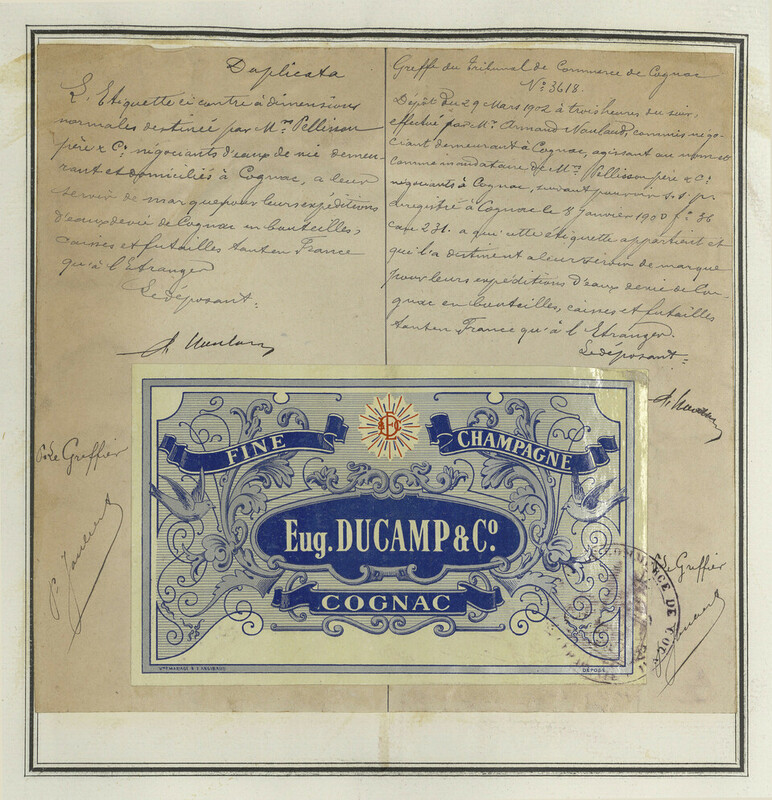 Duplicata
L'Etiquette ci contre à dimensions
normales destinée par Mrs Pellisson
père & Cie négociants d'eaux de vie demeu-
rant et domiciliés à Cognac, a leur
servir de marque pour leurs expéditions
d'eaux de vie de Cognac en bouteilles,
caisses et futailles tant en France
qu'à l'Etranger
Le déposant:
Greffe du Tribunal de Commerce de Cognac
No. 3618.
Dépôt du 29 Mars 1902 à trois heures du soir,
effectué par Mr. Armand Naulaud, commis négo-
ciant demeurant à Cognac, agissant au nom et
comme mandataire de Mrs Pellisson père & Cie
négociants à Cognac, suivant pouvoir s.s.p.
enregistré à Cognac le 8 Janvier 1900 fo. 36
case 231. a qui cette etiquette appartient et
qui l'a destinent a leur servir de marque
pour leurs expéditions d'eaux de vie de Co-
gnac en bouteilles, caisses et futailles
tant en France qu'à l'Etranger.
Le déposant:
Le Greffier
FINE CHAMPAGNE
Eug. DUCAMP & Co.
COGNAC
DÉPOSÉ
Le Greffier